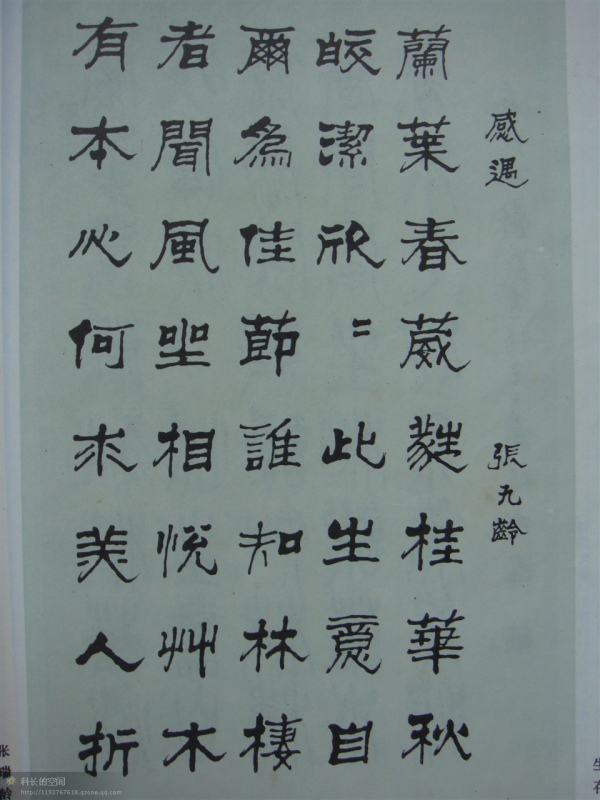 感遇 張九齡
蘭葉春葳蕤桂華秋
皎潔欣〻此生意自
爾為佳節誰知林棲
者聞風坐相悅艸木
有本心何求美人折
张瑞龄
生存
科长的空间
http://1193767618.qzone.qq.com